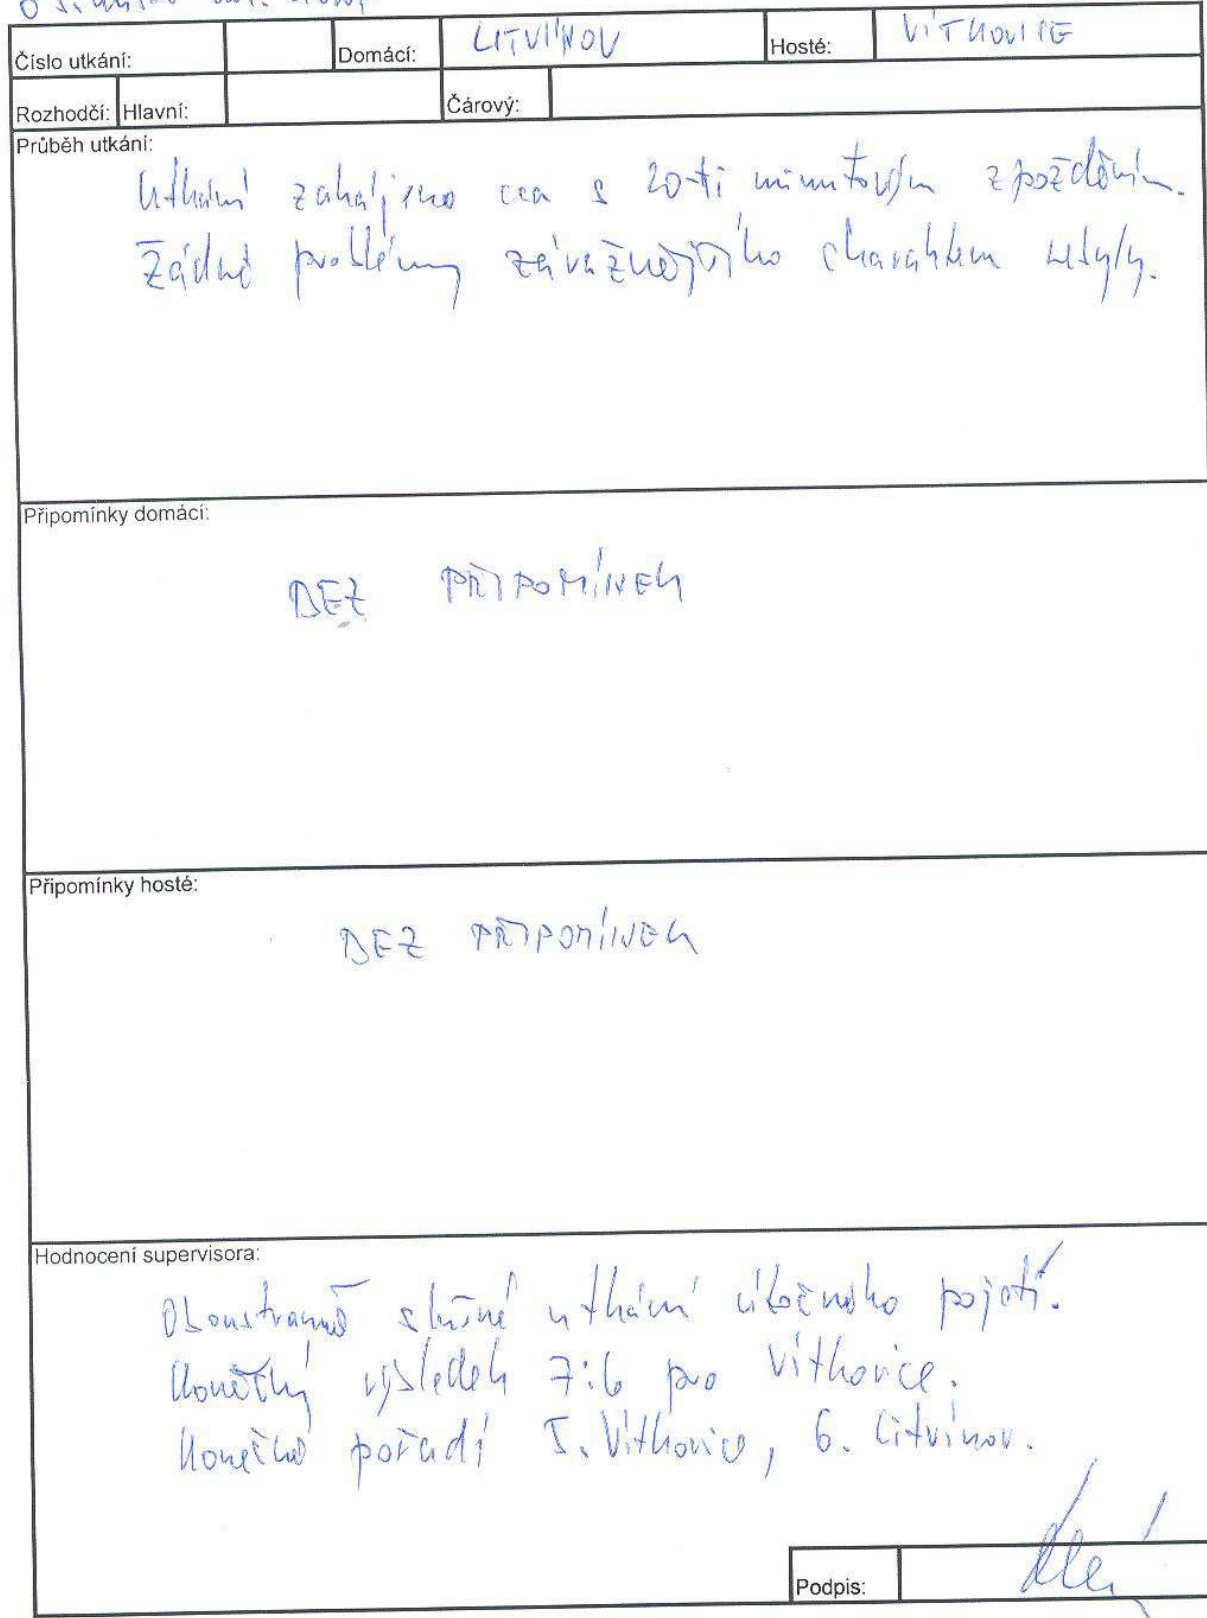 Číslo utkání: Domácí: LITVÍNOV Hosté: VÍTKOVICE
Rozhodčí: Hlavní: Čárový:
Průběh utkání:
Utkání zahájeno cca s 20-ti minutovým zpožděním.
Žádné problémy závažnějšího charakteru nebyly.
Připomínky domácí:
BEZ PŘIPOMÍNEK
Připomínky hosté:
BEZ PŘIPOMÍNEK
Hodnocení supervisora:
Oboustranně slušné utkání útočného pojetí.
Konečný výsledek 7:6 pro Vítkovice.
Konečné pořadí 5. Vítkovice, 6. Litvínov.
Podpis: